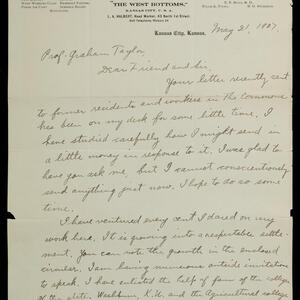 "THE WEST BOTTOMS,"
KANSAS CITY, U.S.A.
Kansas City, Kansas, May 21, 1907.
Prof. Graham Taylor,
Dear Friend and sir,
Your letter recently sent
to former residents and workers in The Commons
has been on my desk for some little time. I
have studied carefully how I might send in
a little money in response to it. I was glad to
have you ask me, but I cannot conscientiously
send anything just now. I hope to do so some
time.
I have ventured every cent I dared on my
work here. It is growing into a respectable settle-
ment. You can note the growth in the enclosed
circular. I am having numerous outside invitations
to speak. I have enlisted the help of four of the colleges
Washburn, K.U. and the Agricultural college